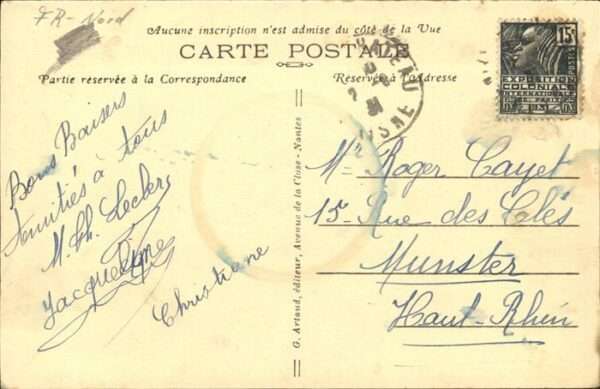 FR-Nord
Aucune inscription n'est admise du côté de la Vue
CARTE POSTALE
Partie réservée à la Correspondance
Réservé à l'Adresse
15c
POSTES
EXPOSITION
COLONIALE
INTERNATIONALE
PARIS
1931
AISNE
Bons Baisers
Amitiés à tous
M. Ch. Leclerc
Jacqueline
Christiane
G. Artaud, éditeur, Avenue de la Close - Nantes
Mr Roger Cayet
15 Rue des Clés
Munster
Haut-Rhin